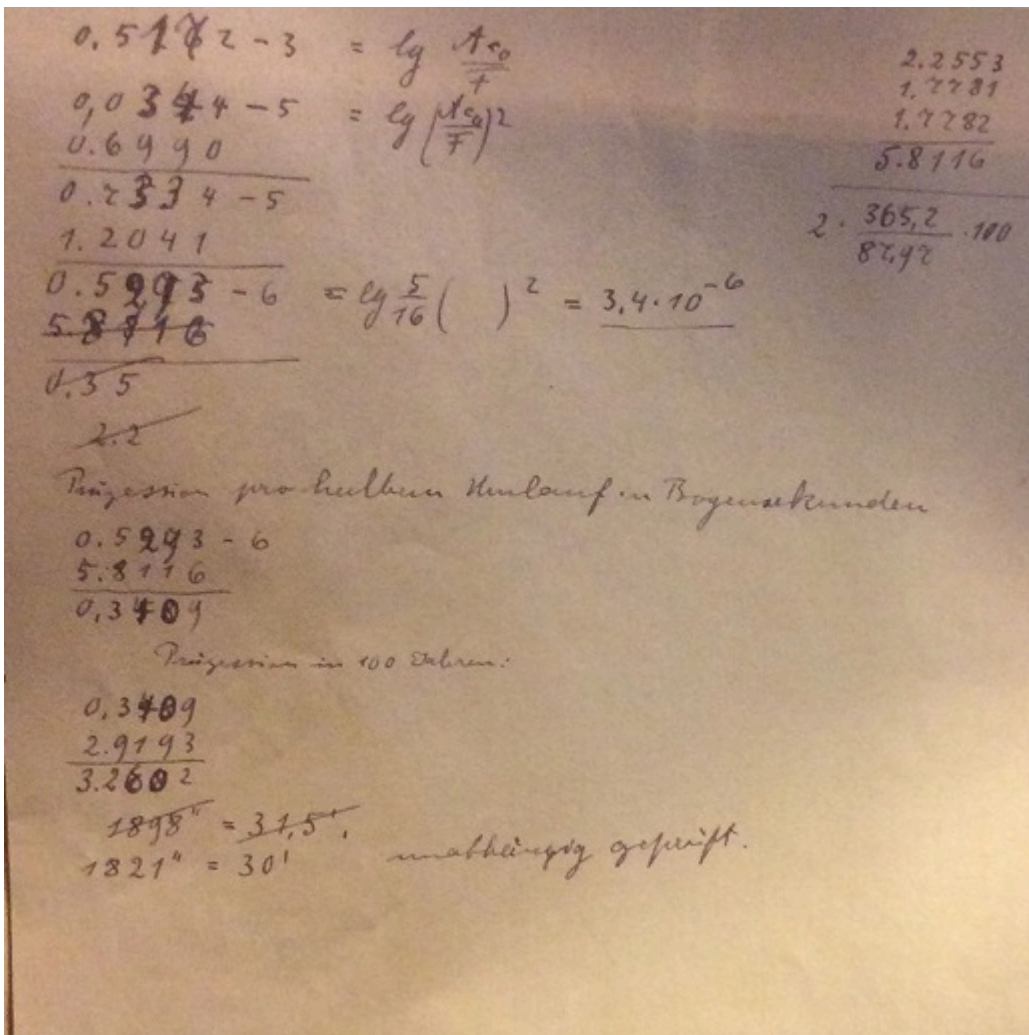 0.5172 - 3 = lg Ac₀/F
0,0344 - 5 = lg (Ac₀/F)²
0.6990
0.7334 - 5
1.2041
0.5293 - 6 = lg 5/16 ( )² = 3,4·10⁻⁶
5.8116
0.35
2.2
2.2553
1.7781
1.7782
5.8116
2 · 365,2/87,97 · 100
Präzession pro halbem Umlauf in Bogensekunden
0.5293 - 6
5.8116
0,3409
Präzession in 100 Jahren:
0,3409
2.9193
3.2602
1898" = 31,5'.
1821" = 30' unabhängig geprüft.